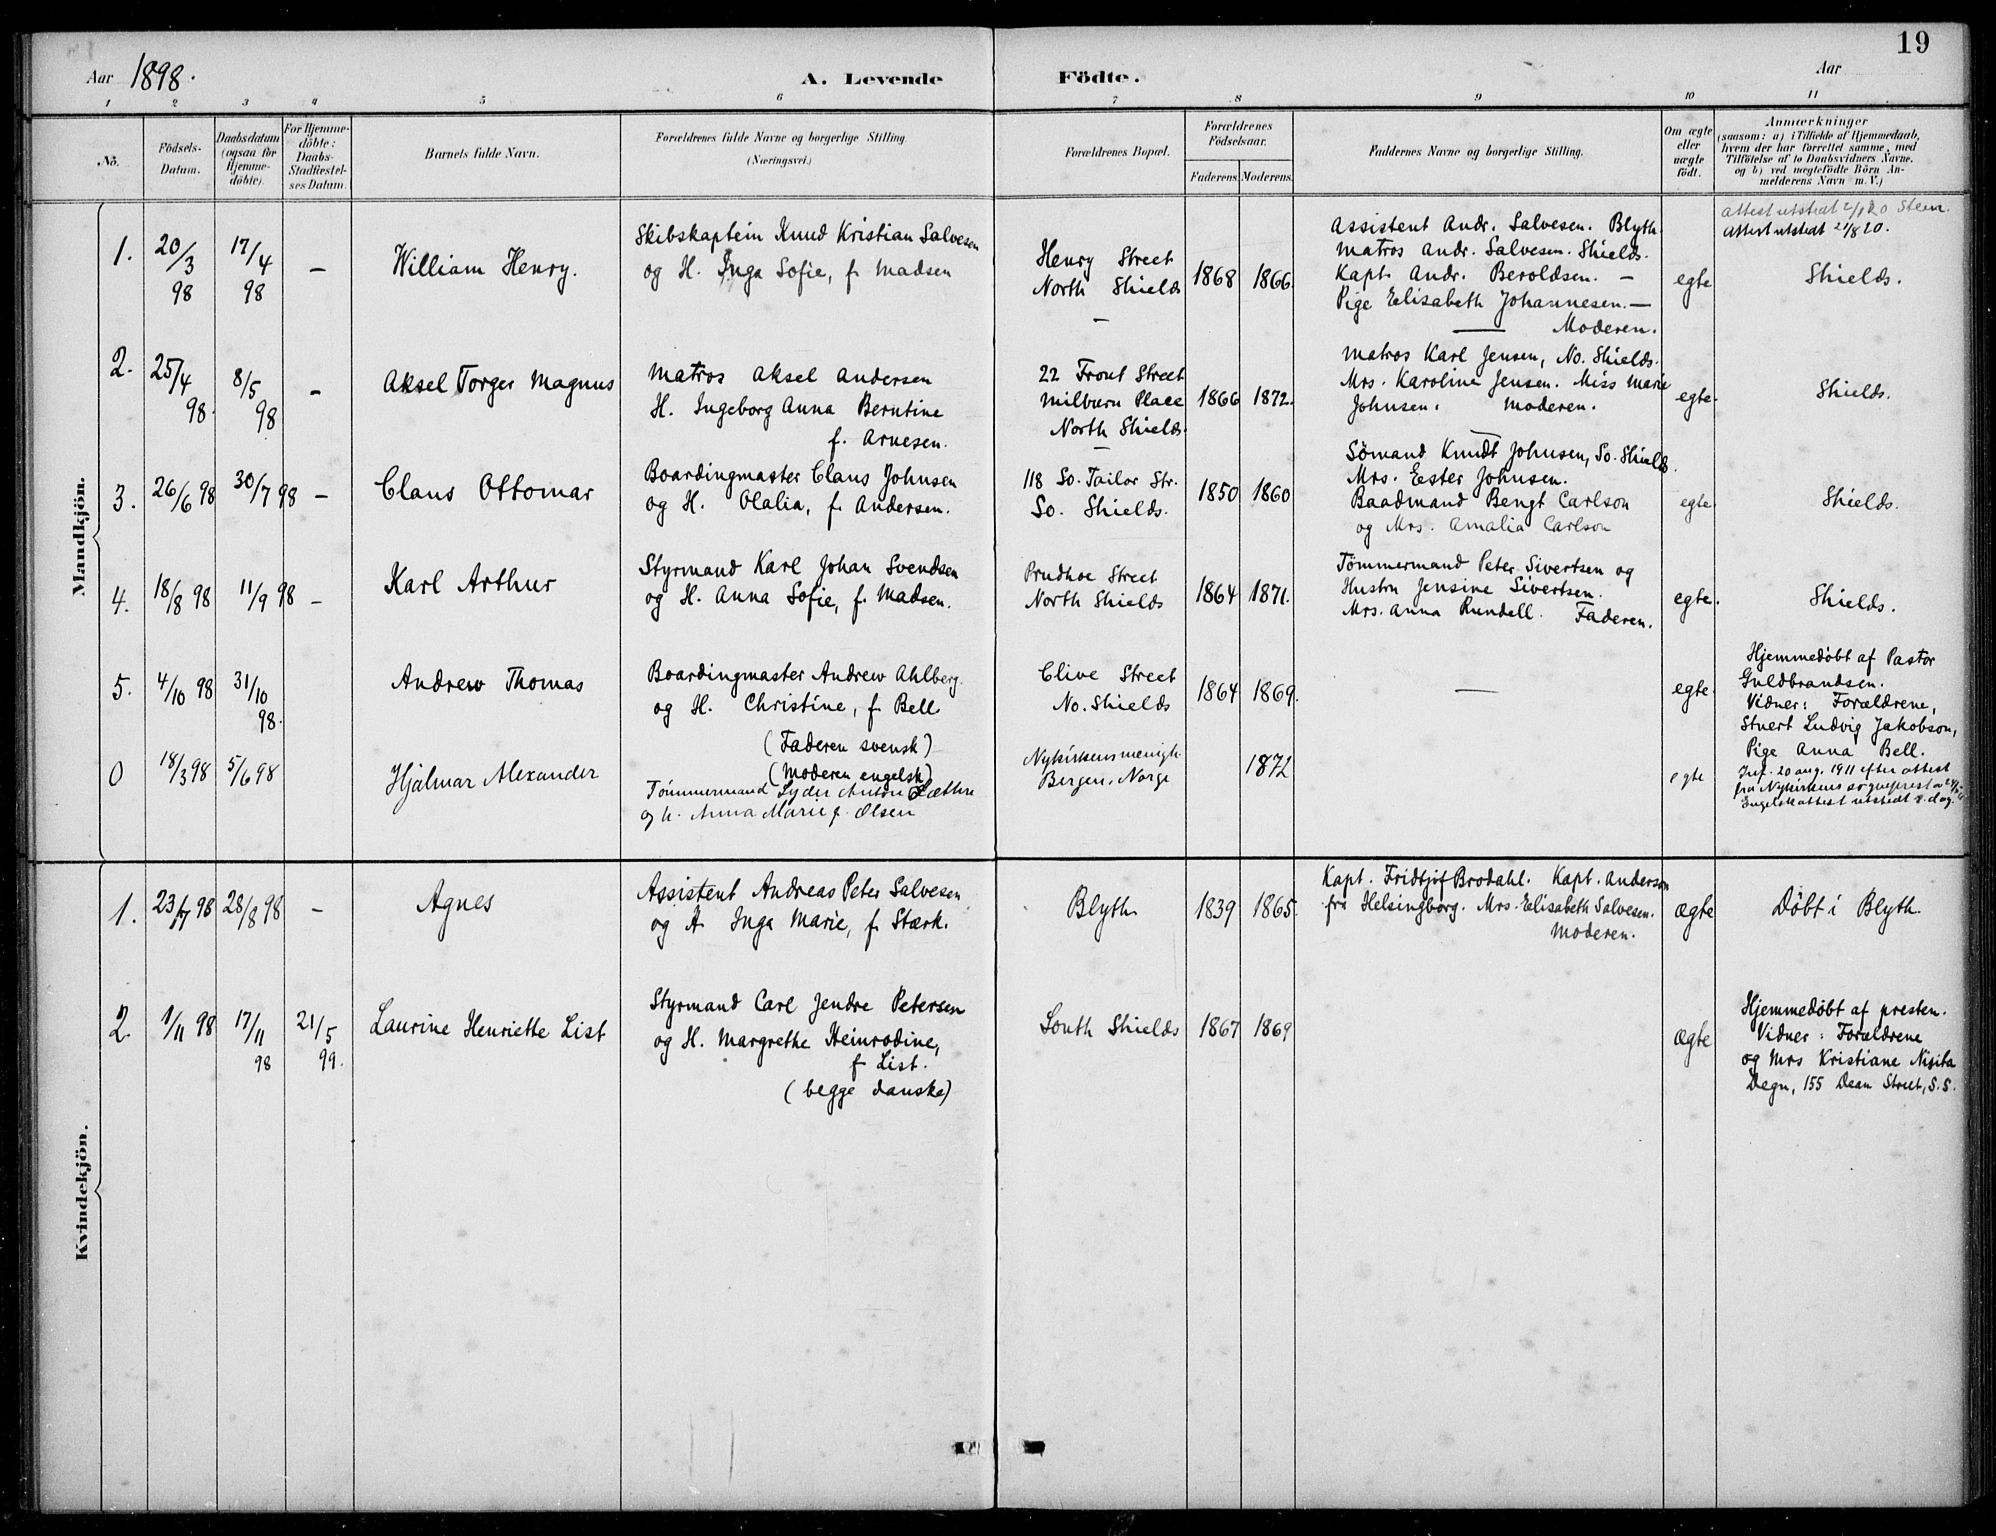 19
Aar 1898.
A. Levende Födte.
Aar
1 2 3 4 5 6 7 8 9 10 11
No.
Födsels-Datum.
Daabsdatum (ogsaa for Hjemme-döbte).
For Hjemme-döbte: Daabs-Stadfæstel-ses Datum.
Barnets fulde Navn.
Forældrenes fulde Navne og borgerlige Stilling (Næringsvei.)
Forældrenes Bopæl.
Forældrenes Födselsaar.
Faderens. Moderens.
Faddernes Navne og borgerlige Stilling.
Om ægte eller uægte födt.
Anmærkninger
(saasom: a) i Tilfælde af Hjemmedaab,
hvem der har forrettet samme, med
Tilföielse af to Daabsvidners Navne.
og b) ved uægtefödte Börn An-
melderens Navn m. V.)
Mandkjön.
1.
20/3 98
17/4 98
–
William Henry.
Skibskaptein Knud Kristian Salvesen
og H. Inga Sofie, f. Madsen
Henry Street
North Shields
–
1868
1866.
Assistent Andr. Salvesen. Blyth.
Matros Andr. Salvesen. Shields.
Kapt. Andr. Beroldsen. –
Pige Elisabeth Johannesen. –
— Moderen.
egte
Attest utstedt 2/1 20 Steen.
Attest utstedt 21/8 20.
Shields.
2.
25/4 98.
8/5 98
–
Aksel Torger Magnus
Matros Aksel Andersen
H. Ingeborg Anna Berntine
f. Arnesen.
22 Front Street
Milburn Place
North Shields.
–
1866
1872.
Matros Karl Jensen, No. Shields.
Mrs. Karoline Jensen. Miss Marie
Johnsen. Moderen.
—
egte.
Shields.
3.
26/6 98
30/7 98
–
Claus Ottomar
Boardingmaster Claus Johnsen
og H. Olalia, f. Andersen.
118 So. Tailor Str.
So. Shields.
1850
1860
Sömand Knudt Johnsen, So. Shields.
Mrs. Ester Johnsen.
Baadmand Bengt Carlson
og Mrs. Amalia Carlson
egte.
Shields.
4.
18/8 98
11/9 98
–
Karl Arthur
Styrmand Karl Johan Svendsen
og H. Anna Sofie, f. Madsen.
Prudhoe Street
North Shields
1864
1871.
Tömmermand Peter Sivertsen og
Hustru Jensine Sivertsen.
Mrs. Anna Rundell. Faderen.
egte.
Shields.
5.
4/10 98
31/10 98.
Andrew Thomas
Boardingmaster Andrew Ahlberg.
og H. Christine, f. Bell
(Faderen svensk)
(Moderen engelsk)
Clive Street
No. Shields
1864
1869.
—
egte.
Hjemmedöbt af Pastor
Guldbrandsen.
Vidner: Forældrene,
Stuert Ludvig Jakobson,
Pige Anna Bell.
0
18/3 98
5/6 98
Hjalmar Alexander
Tømmermand Lyder Anton Sæthre
og h. Anna Marie f. Olsen
Nykirkens menigh.
Bergen, Norge
1872
egte
Inf. 20 aug. 1911 efter attest
fra Nykirkens sogneprest av
Engelsk attest utstedt s. dag.
Kvindekjön.
1.
23/7 98
28/8 98
–
Agnes
Assistent Andreas Peter Salvesen
og H. Inga Marie, f. Stærk.
Blyth
1839
1865.
Kapt. Fridtjof Brodahl. Kapt. Anderson
fra Helsingborg. Mrs. Elisabeth Salvesen.
Moderen.
ægte
Döbt i Blyth.
2.
1/11 98
17/11 98
21/5 99.
Laurine Henriette List
Styrmand Carl Jendre Petersen
og H. Margrethe Heinrodine,
f. List.
(begge danske)
South Shields
1867
1869
ægte
Hjemmedöbt af presten.
Vidner: Forældrene
og Mrs Kristiane Nisita
Degn, 155 Dean Street, S.S.